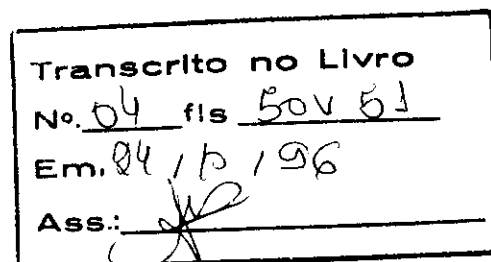 Transcrito no Livro
Nº. 04 fls 50V 51
Em. / / 96
Ass.: